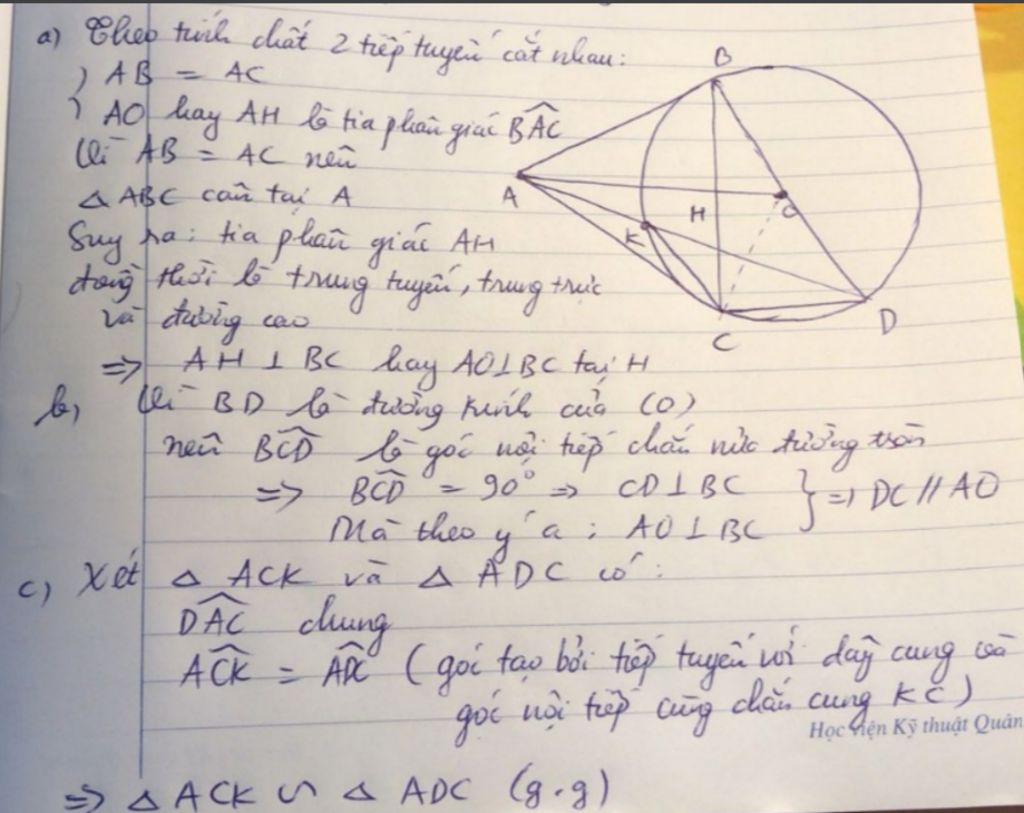 a) Theo tính chất 2 tiếp tuyến cắt nhau:
) AB = AC
) AO hay AH là tia phân giác BAC
Vì AB = AC nên
△ ABC cân tại A
Suy ra: tia phân giác AH
đồng thời là trung tuyến, trung trực
và đường cao
=> AH ⊥ BC hay AO ⊥ BC tại H
b, Vì BD là đường kính của (O)
nên BCD là góc nội tiếp chắn nửa đường tròn
=> BCD = 90° => CD ⊥ BC
Mà theo ý a: AO ⊥ BC } => DC // AO
c) Xét △ ACK và △ ADC có:
DAC chung
ACK = ADC (góc tạo bởi tiếp tuyến với dây cung và
góc nội tiếp cùng chắn cung KC)
Học viện Kỹ thuật Quân
=> △ ACK ∽ △ ADC (g.g)
B
A
H
O
K
C
D